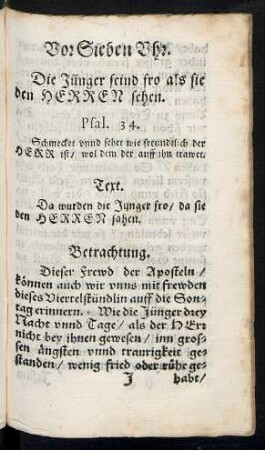 Vor Sieben Vhr.
Die Jünger seind fro als sie
den HERREN sehen.
Psal. 34.
Schmecket vnnd sehet wie freundtlich der
HERR ist/ wol dem der auff ihn trawet.
Text.
Da wurden die Jünger fro/ da sie
den HERREN sahen.
Betrachtung.
Dieser Frewd der Aposteln/
können auch wir vnns mit frewden
dieses Viertelstündlin auff die Son-
tag erinnern. Wie die Jünger drey
Nacht vnnd Tage/ als der HErr
nicht bey ihnen gewesen/ inn gros-
sen ängsten vnnd traurigkeit ge-
standen/ wenig fried oder rühe ge-
J habt/